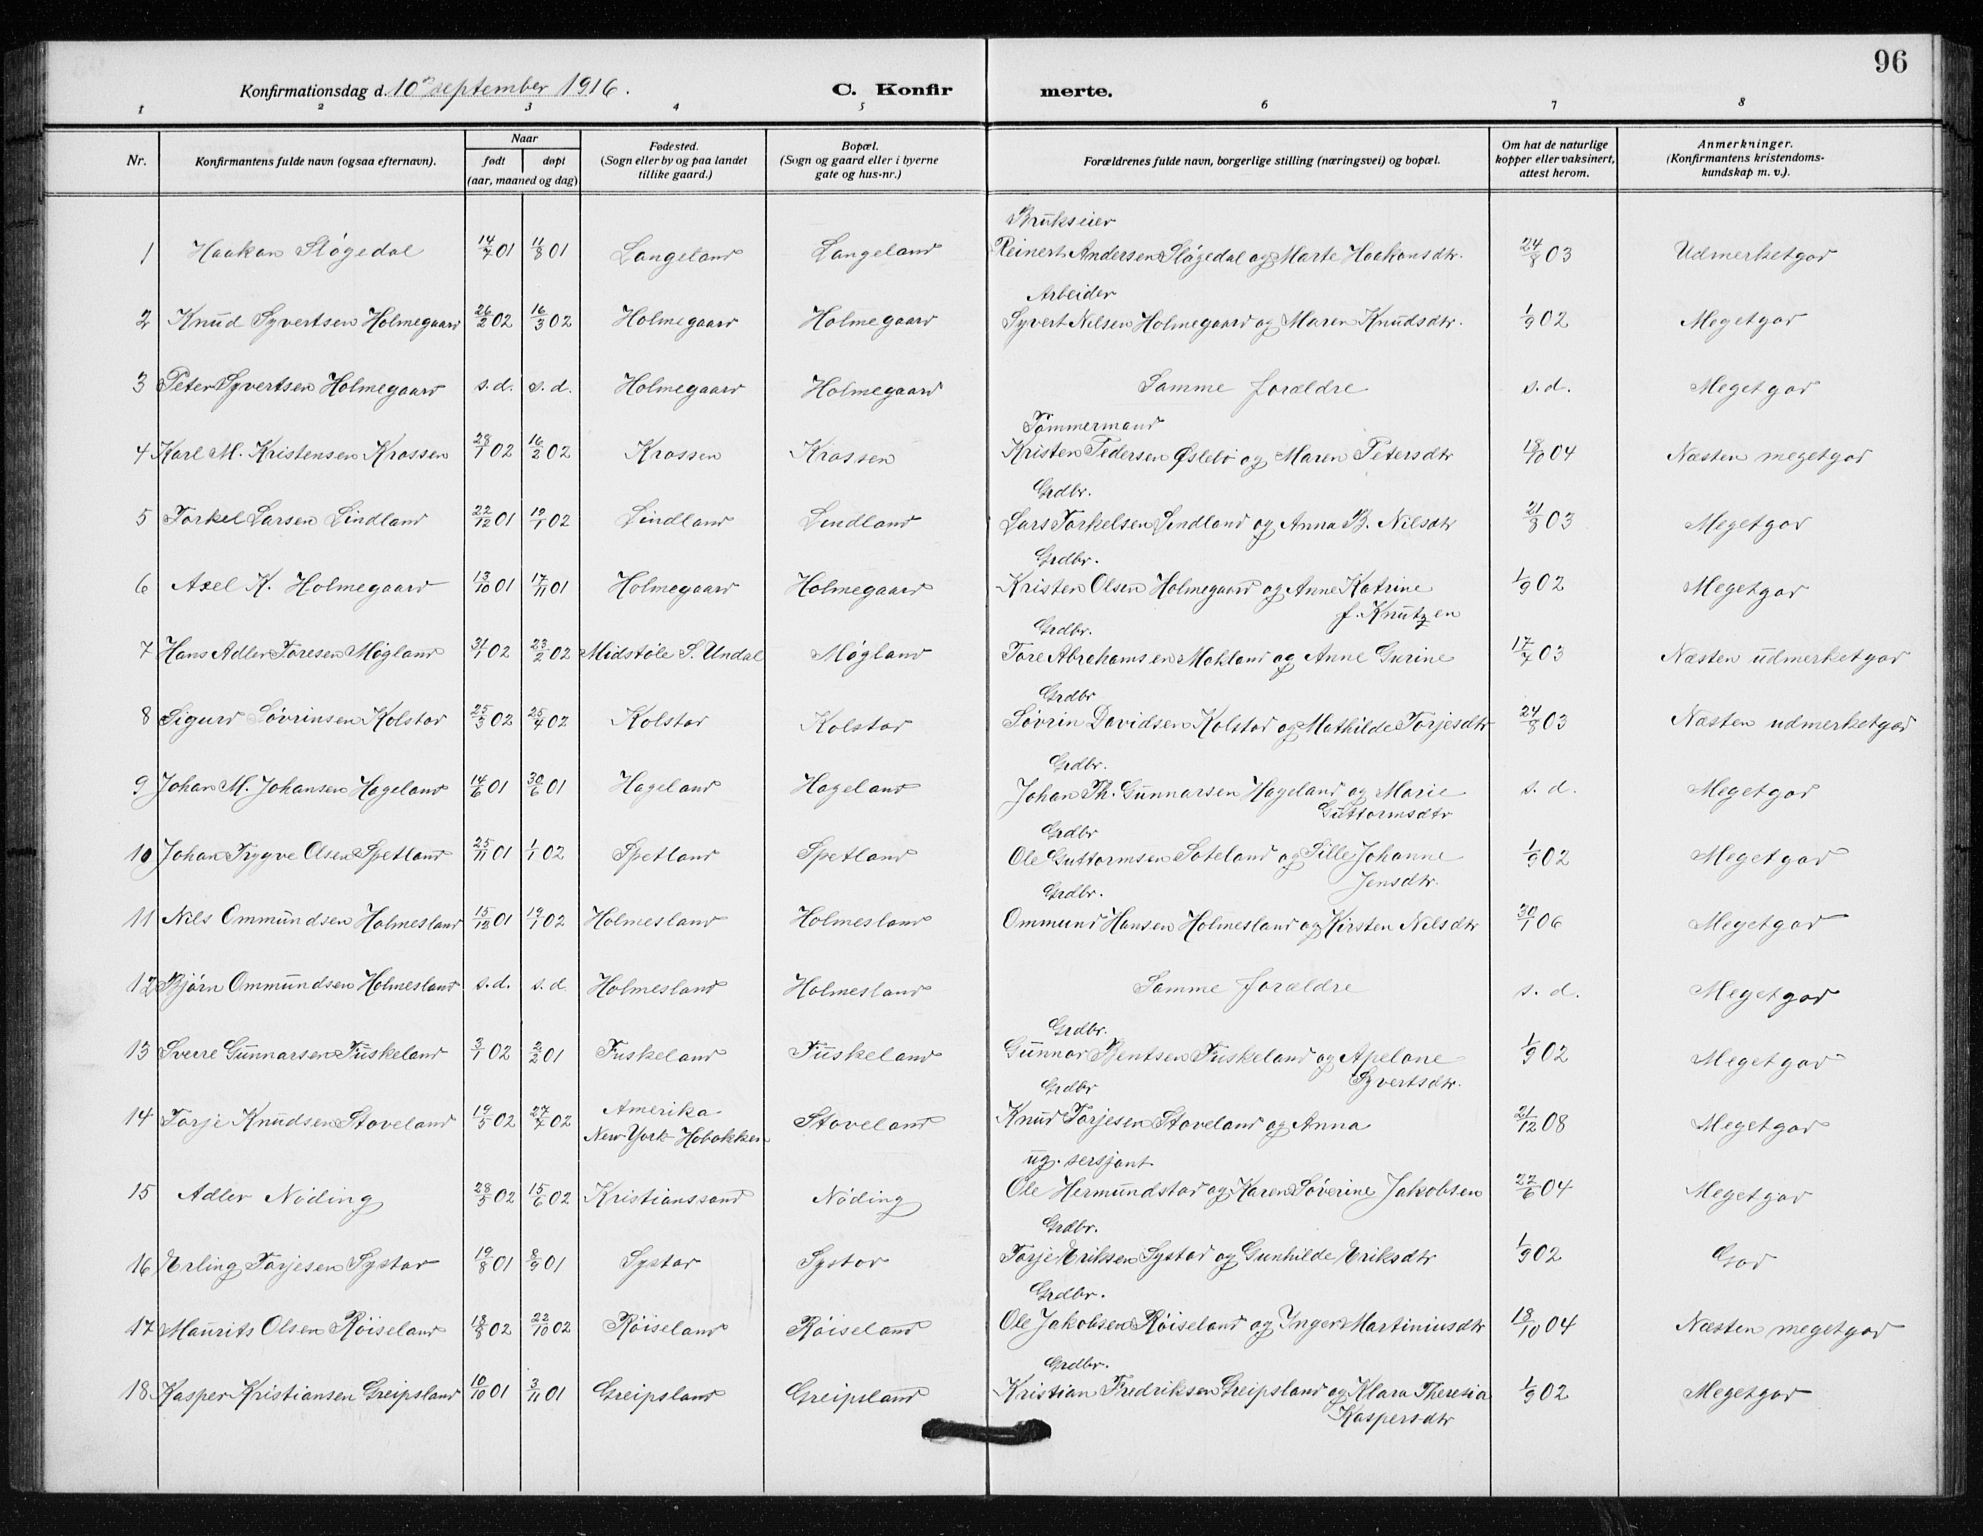 96
Konfirmationsdag d. 10de september 1916. C. Konfirmerte.
1 2 3 4 5 6 7 8
Nr. Konfirmantens fulde navn (ogsaa efternavn). Naar født døpt (aar, maaned og dag) Fødested. (Sogn eller by og paa landet tillike gaard.) Bopæl. (Sogn og gaard eller i byerne gate og hus-nr.) Forældrenes fulde navn, borgerlige stilling (næringsvei) og bopæl. Om hat de naturlige kopper eller vaksinert, attest herom. Anmerkninger. (Konfirmantens kristendomskundskap m. v.).
Brukseier
1 Haakon Sløgedal 14/7 01 11/8 01 Langeland Langeland Reinert Andersen Sløgedal og Marte Haakonsdtr. 24/8 03 Udmerketgod
Arbeider
2 Knud Syvertsen Holmegaard 26/2 02 16/3 02 Holmegaard Holmegaard Syvert Nilsen Holmegaard og Maren Knudsdtr. 1/9 02 Megetgod
3 Peter Syvertsen Holmegaard s.d. s.d. Holmegaard Holmegaard Samme forældre s.d. Megetgod
Tømmermand
4 Karl M. Kristensen Krossen 28/1 02 16/2 02 Krossen Krossen Kristen Pedersen Øslebø og Maren Petersdtr 18/10 04 Næsten megetgod
Grdbr.
5 Torkel Larsen Lindland 22/12 01 19/1 02 Lindland Lindland Lars Torkelsen Lindland og Anna B. Nilsdtr 21/8 03 Megetgod
Grdbr.
6 Axel K. Holmegaard 13/10 01 17/11 01 Holmegaard Holmegaard Kristen Olsen Holmegaard og Anne Katrine 1/9 02 Megetgod
f. Knutzen
Grdbr.
7 Hans Adler Toresen Møgland 31/1 02 23/2 02 Midstøle S. Undal Møgland Tore Abrahamsen Mokland og Anne Gurine 17/7 03 Næsten udmerketgod
Grdbr
8 Sigurd Søvrinsen Kolstad 25/3 02 25/4 02 Kolstad Kolstad Søvrin Davidsen Kolstad og Mathilde Torjesdtr 24/8 03 Næsten udmerketgod
Grdbr.
9 Johan M. Johansen Hageland 14/6 01 30/6 01 Hageland Hageland Johan Th. Gunnarsen Hageland og Marie s.d. Megetgod
Guttormsdtr
Grdbr
10 Johan Trygve Olsen Spetland 25/11 01 1/1 02 Spetland Spetland Ole Guttormsen Soteland og Sille Johanne 1/9 02 Megetgod
Jensdtr.
Grdbr.
11 Nils Ommundsen Holmesland 15/12 01 19/1 02 Holmesland Holmesland Ommund Hansen Holmesland og Kirsten Nilsdtr 30/1 06 Megetgod
12 Bjørn Ommundsen Holmesland s.d. s.d Holmesland Holmesland Samme forældre s.d. Megetgod
Grdbr.
13 Sverre Gunnarsen Fuskeland 3/1 02 2/2 01 Fuskeland Fuskeland Gunnar Bentsen Fuskeland og Apelone 1/9 02 Megetgod
Syvertsdtr.
Grdbr
14 Torje Knudsen Stoveland 19/5 02 27/7 02 Amerika New York Hobokken Stoveland Knud Torjesen Stoveland og Anna 21/12 08 Megetgod
ug. sersjant
15 Adler Nøding 28/5 02 15/6 02 Kristianssand Nøding Ole Hermundstad og Karen Søverine Jakobsen 22/6 04 Megetgod
Grdbr.
16 Erling Torjesen Systad 19/8 01 8/9 01 Systad Systad Torje Eriksen Systad og Gunhilde Eriksdtr 1/9 02 God
Grdbr.
17 Maurits Olsen Røiseland 18/8 02 22/10 02 Røiseland Røiseland Ole Jakobsen Røiseland og Inger Martiniusdtr 18/10 04 Næsten megetgod
Grdbr.
18 Kasper Kristiansen Greipsland 10/10 01 3/11 01 Greipsland Greipsland Kristian Fredriksen Greipsland og Klara Theresia 1/9 02 Megetgod
Kaspersdtr